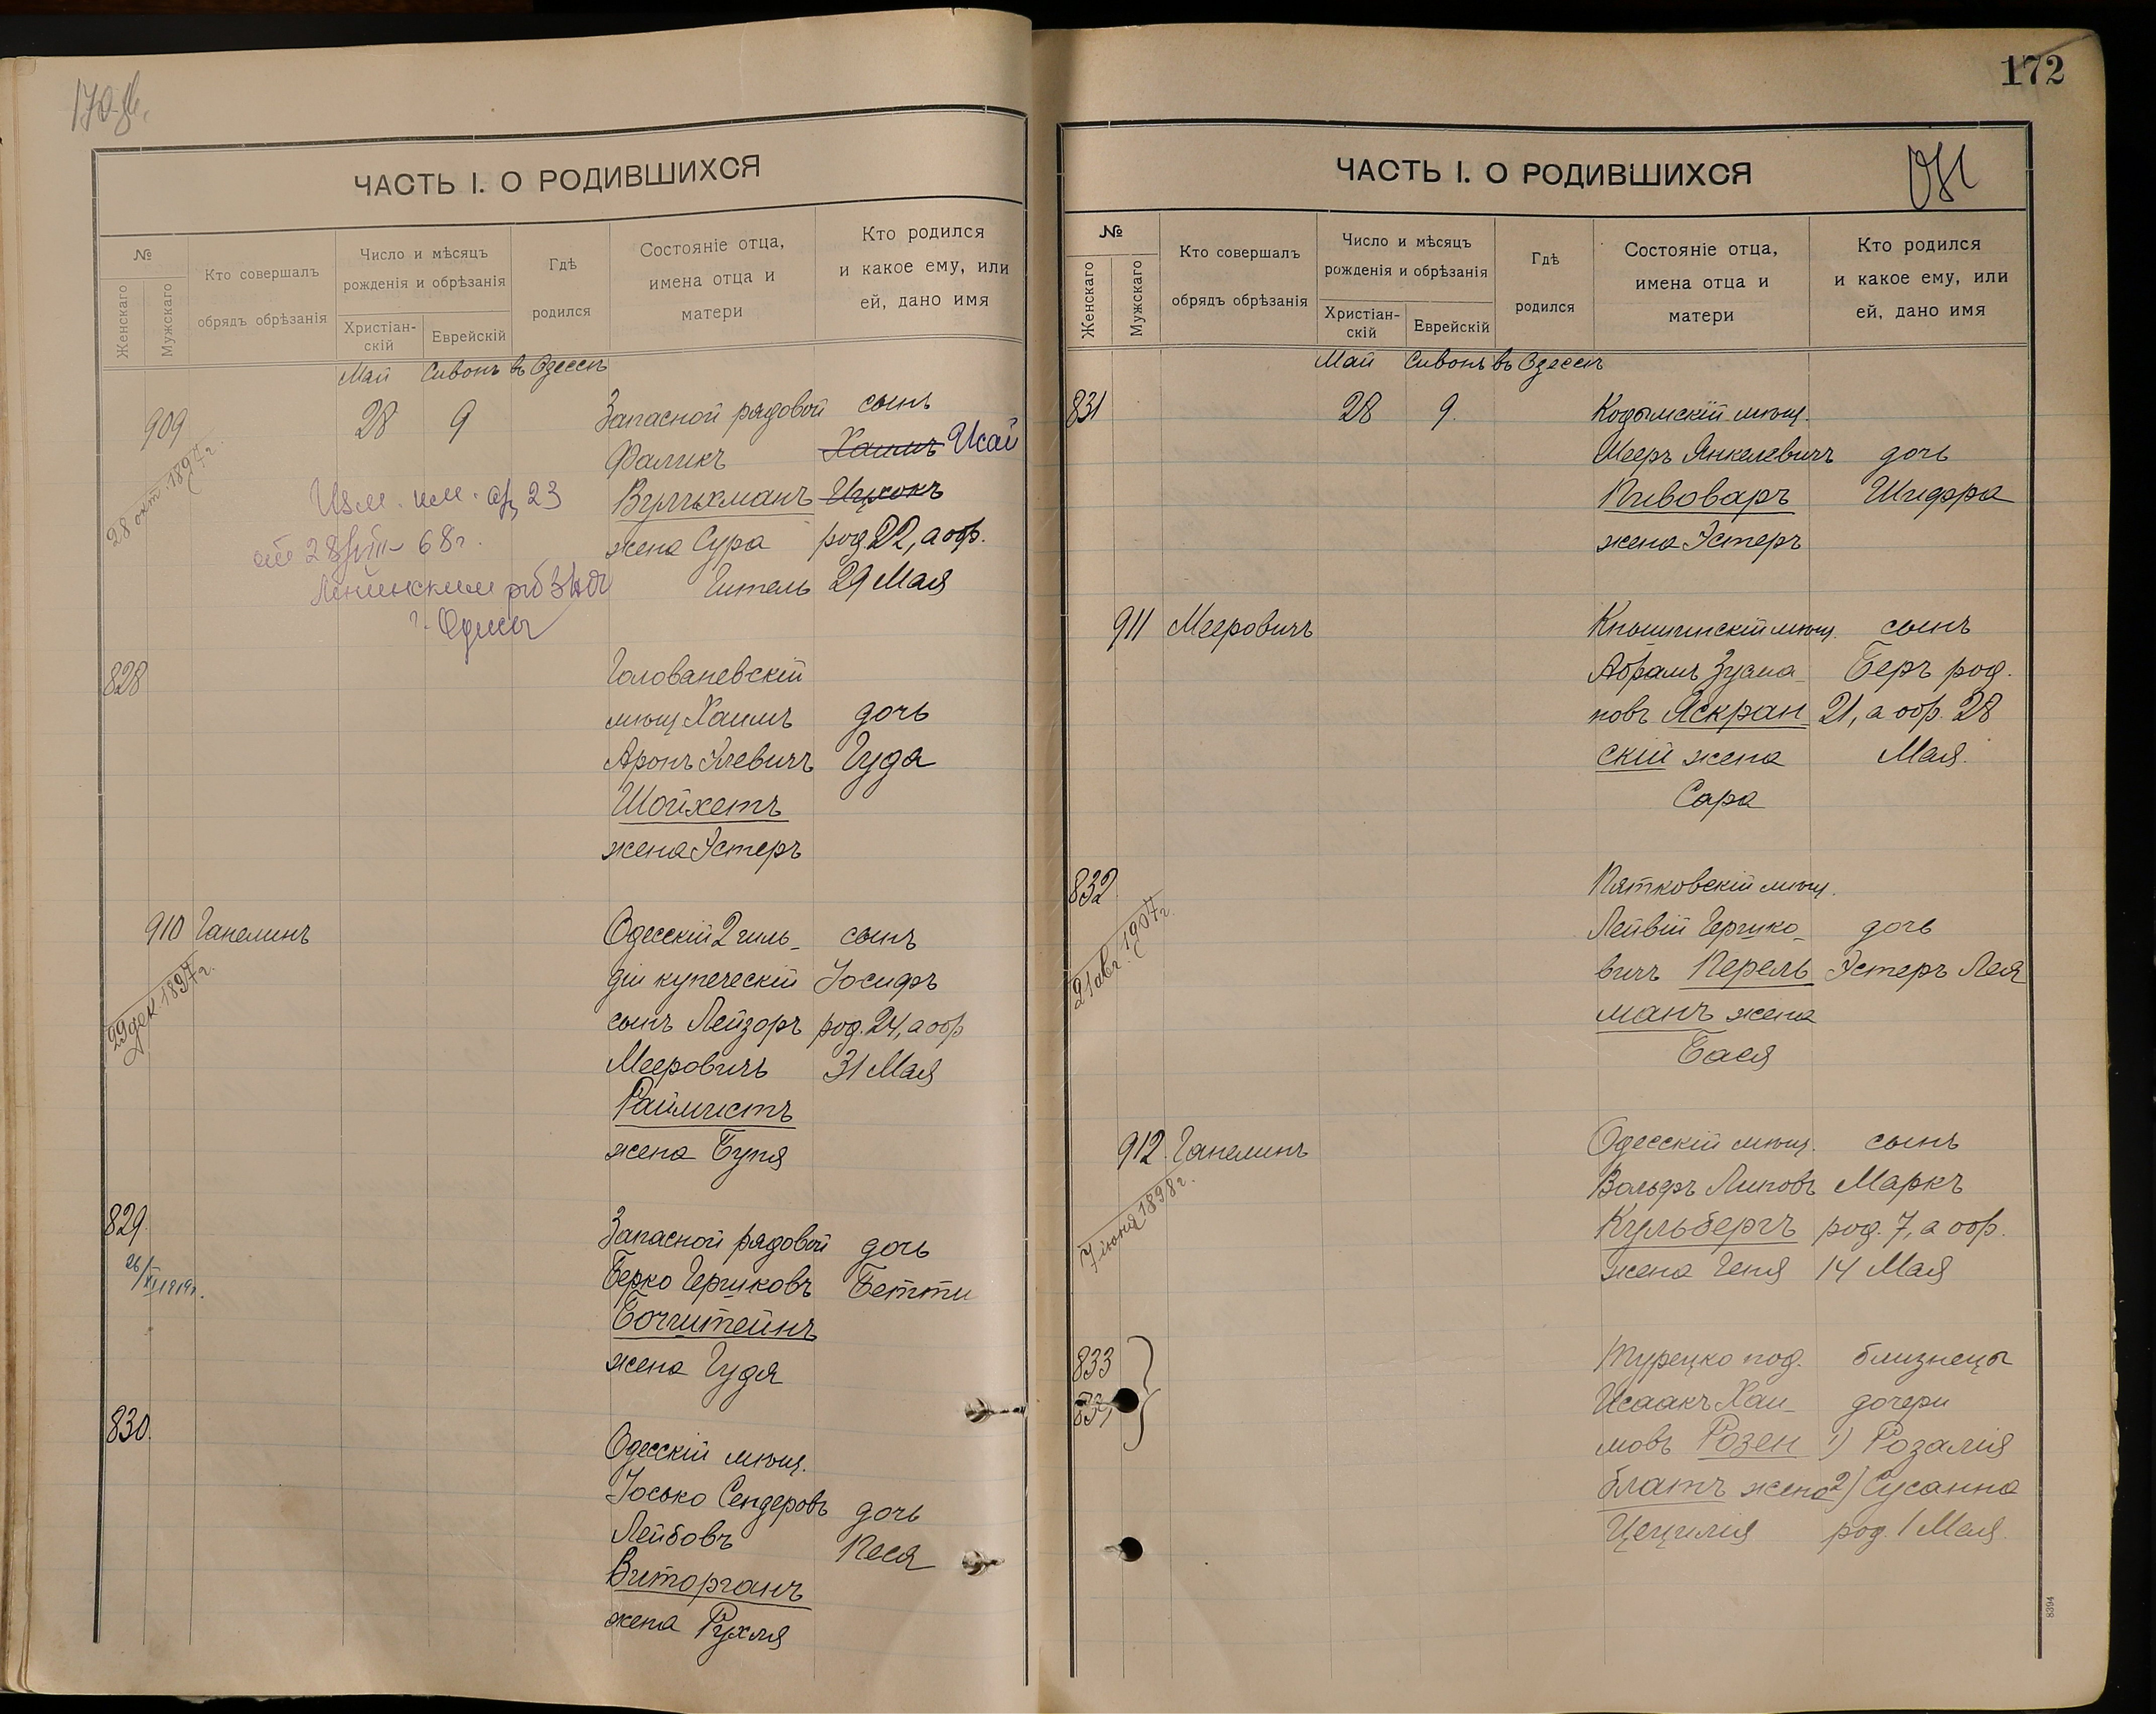 ЧАСТЬ I. О РОДИВШИХСЯ
№
Женскаго
Мужскаго
Кто совершалъ
обрядъ обрѣзанія
Число и мѣсяцъ
рожденія и обрѣзанія
Христіан-
скій
Еврейскій
Гдѣ
родился
Состояніе отца,
имена отца и
матери
Кто родился
и какое ему, или
ей, дано имя
Май Сивонъ въ Одессѣ
909 28 9 Запасной рядовой сынъ
28 окт. 1897г.
Фаликъ Хаимъ Исай
жена Сура род. 22, а обр.
Гитель 29 Мая
Изм. им. 23
68г.
г. Одессы
828 Голованевскій
мѣщ Хаимъ дочь
Аронъ Гуда
Шойхетъ
жена Эстеръ
910 Ганелинъ Одесскій 2 гиль- сынъ
29 дек. 1897г.
діи купеческій Іосифъ
сынъ Лейзоръ род. 24, а обр
Мееровичъ 31 Мая
Раймистъ
жена Буня
829. Запасной рядовой дочь
Берко Гершковъ Бетти
Бочштейнъ
жена Гудя
830. Одесскій мѣщ.
Іосько Сендеровъ дочь
Лейбовъ Песя
Виторганъ
жена Рухля
172
ЧАСТЬ I. О РОДИВШИХСЯ
№
Женскаго
Мужскаго
Кто совершалъ
обрядъ обрѣзанія
Число и мѣсяцъ
рожденія и обрѣзанія
Христіан-
скій
Еврейскій
Гдѣ
родился
Состояніе отца,
имена отца и
матери
Кто родился
и какое ему, или
ей, дано имя
Май Сивонъ въ Одессѣ
831 28 9. Кодымскій мѣщ.
Мееръ Янкелевичъ дочь
Пивоваръ Шифра
жена Эстеръ
911 Мееровичъ Кнышинскій мѣщ. сынъ
Абрамъ Зусма- Беръ род.
новъ Яскран 21, а обр. 28
скій жена Мая.
Сара
832 Пятковскій мѣщ.
21 авг. 1907г.
Лейвій Гершко- дочь
вичъ Перель Эстеръ Лея
манъ жена
Бася
912. Ганелинъ Одесскій мѣщ. сынъ
7 іюня 1898г.
Вольфъ Липовъ Маркъ
Кульбергъ род. 7, а обр.
жена Геня 14 Мая
833 Турецко под. близнецы
Исаакъ Хаи- дочери
мовъ Розен 1) Розалія
блатъ жена 2) Сусанна
Цецилія род. 1 Мая.
8394